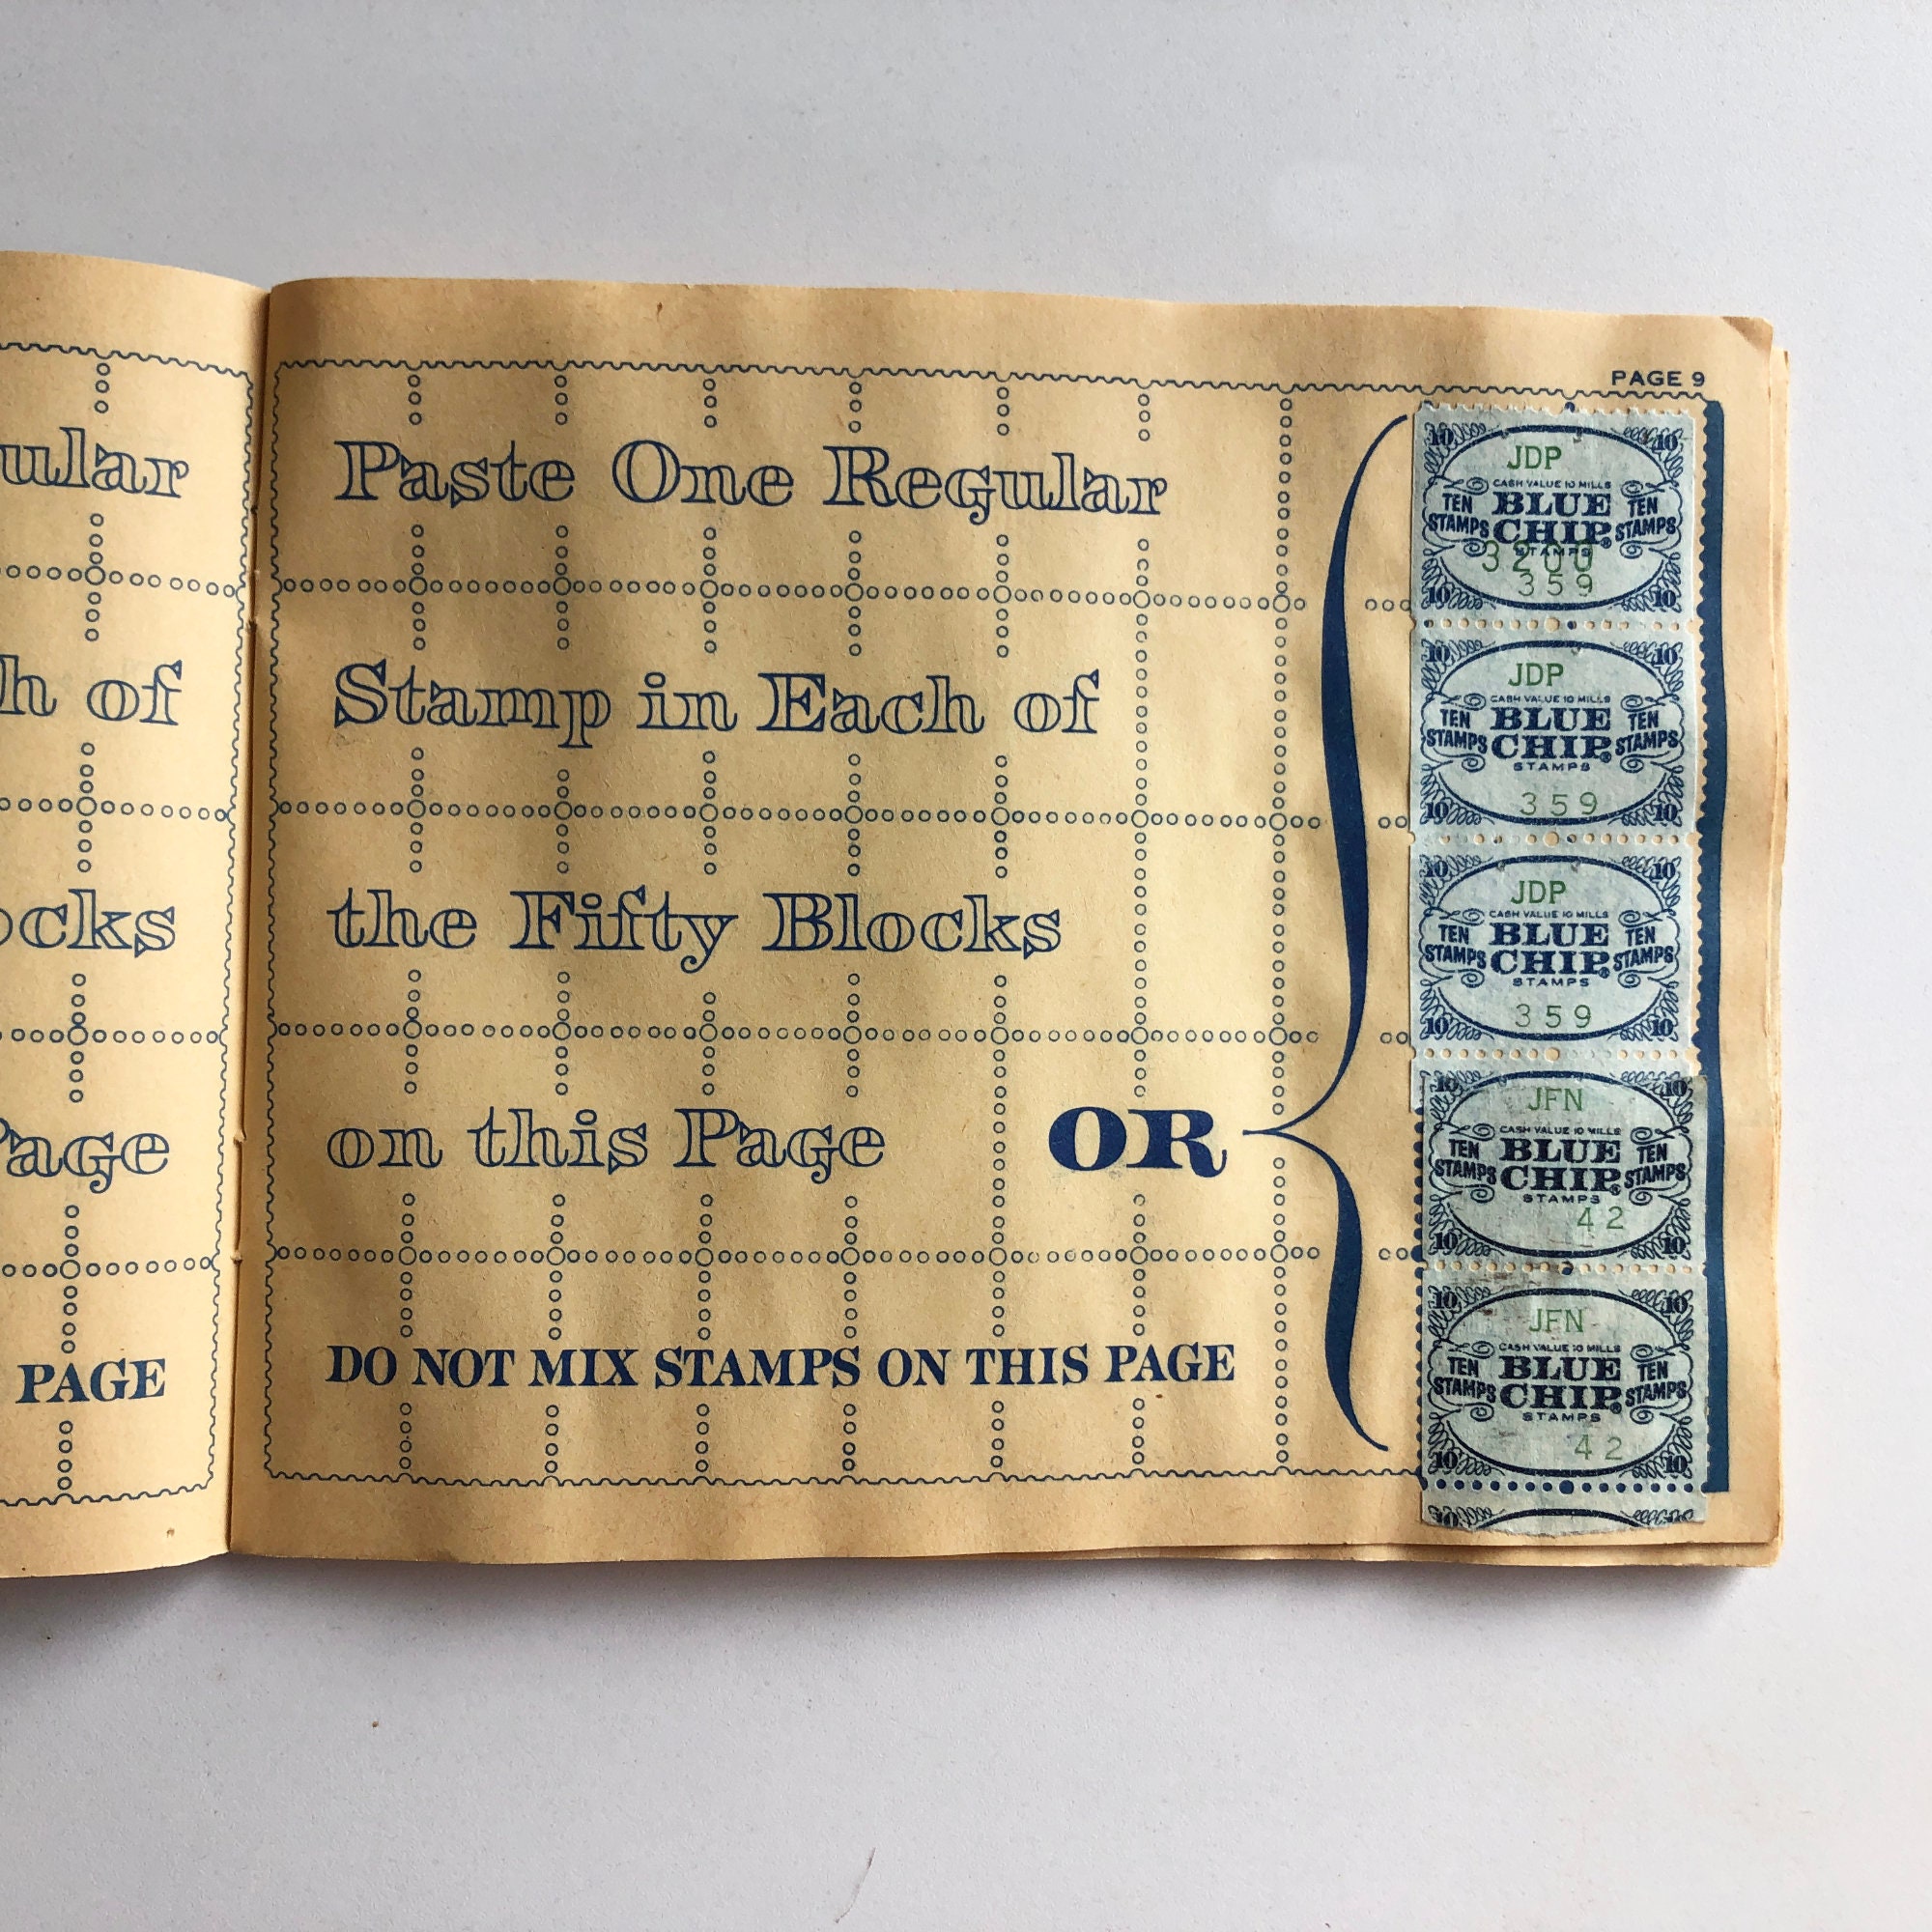 ular
h of
ocks
Page
PAGE
PAGE 9
Paste One Regular
Stamp in Each of
the Fifty Blocks
on this Page OR
DO NOT MIX STAMPS ON THIS PAGE
10 10
JDP
CASH VALUE 10 MILLS
TEN STAMPS BLUE CHIP TEN STAMPS
STAMPS
3200
359
10 10
10 10
JDP
CASH VALUE 10 MILLS
TEN STAMPS BLUE CHIP® TEN STAMPS
STAMPS
359
10 10
10 10
JDP
CASH VALUE 10 MILLS
TEN STAMPS BLUE CHIP® TEN STAMPS
STAMPS
359
10 10
10 10
JFN
CASH VALUE 10 MILLS
TEN STAMPS BLUE CHIP® TEN STAMPS
STAMPS
42
10 10
10 10
JFN
CASH VALUE 10 MILLS
TEN STAMPS BLUE CHIP® TEN STAMPS
STAMPS
42
10 10
10